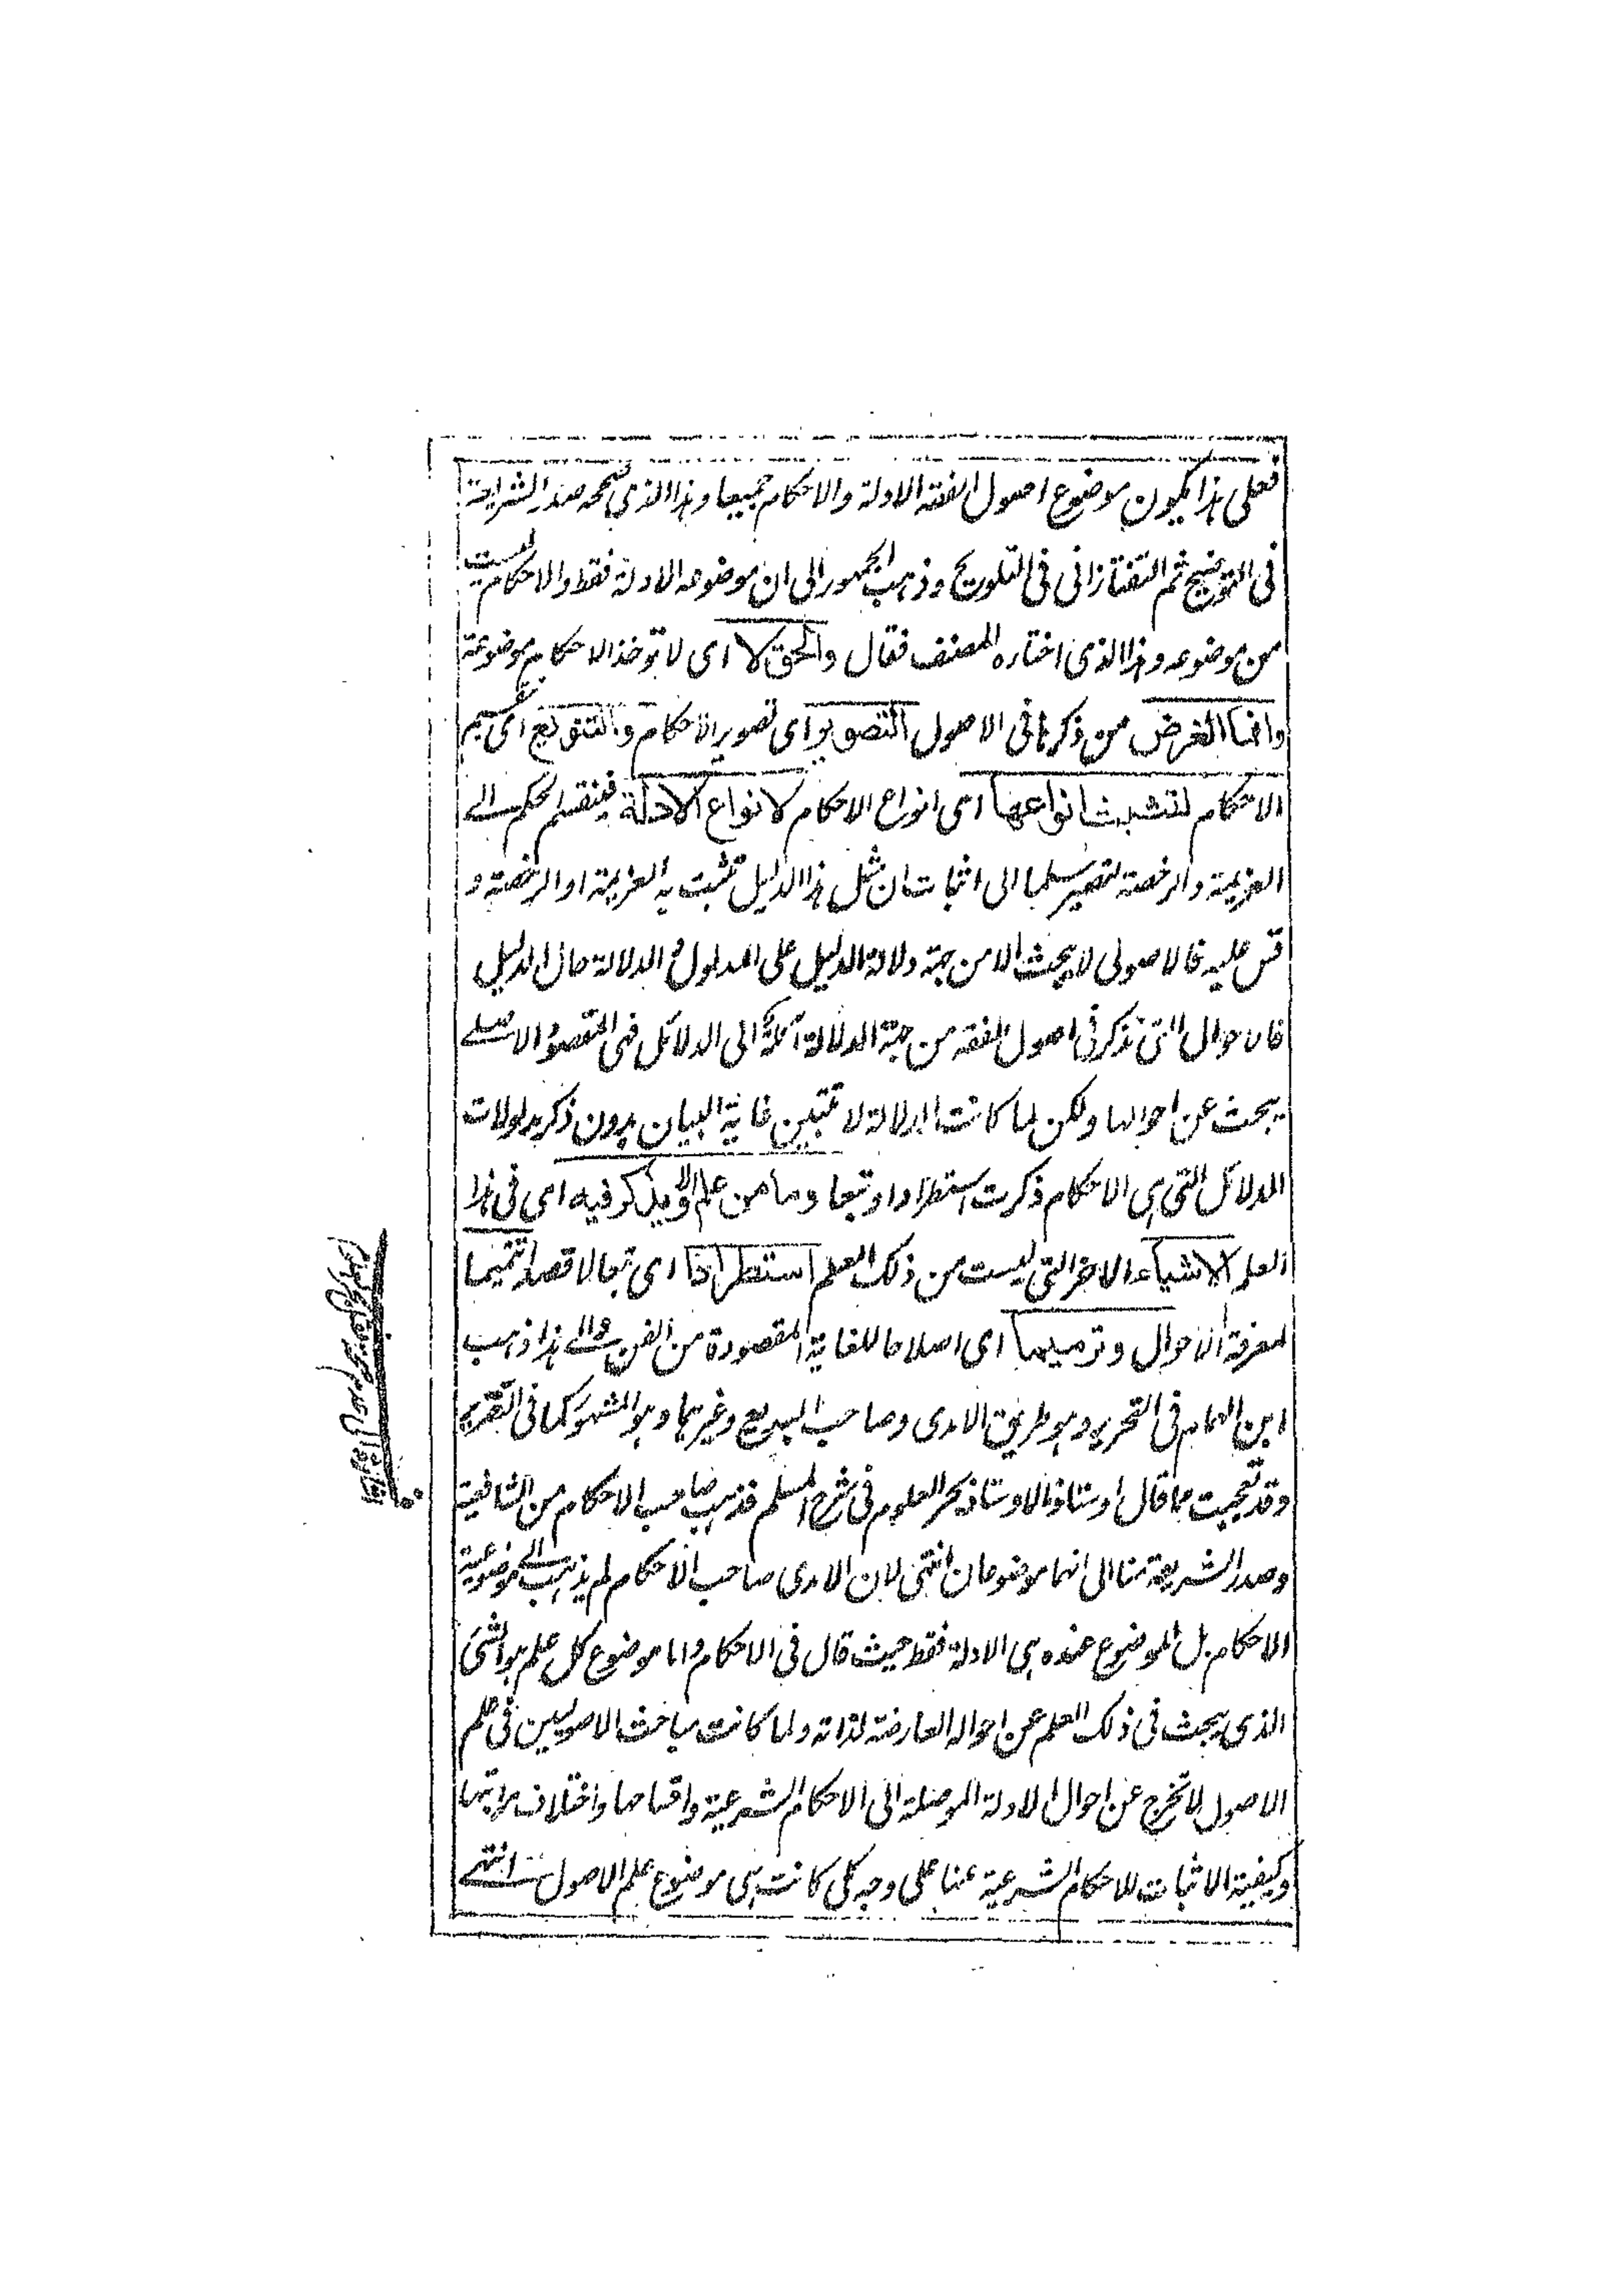 فعلى هذا يكون موضوع اصول الفقه الادلة والاحكام جميعا وهذا الذى صححه صدر الشريعة
فى التوضيح ثم التفتازانى فى التلويح وذهب الجمهور الى ان موضوعه الادلة فقط والاحكام ليست
من موضوعه وهذا الذى اختاره المصنف فقال والحق لا اى لا توخذ الاحكام موضوعة
وانما الغرض من ذكرها فى الاصول التصوير اى تصوير الاحكام والتنويع اى تقسيم
الاحكام لتثبت انواعها اى انواع الاحكام لانواع الادلة فينقسم الحكم الے
العزيمة والرخصة لتصير سلما الى اثبات ان مثل هذا الدليل تثبت به العزيمة او الرخصة و
قس عليه فالاصولى لا يبحث الا من جهة دلالة الدليل على المدلول و الدلالة حال الدليل
فالاحوال التى تذكر فى اصول الفقه من جهة الدلالة آئلة الى الدلائل فهى المقصود الاصلے
يبحث عن احوالها ولكن لما كانت الدلالة لا تتبين غاية البيان بدون ذكر مدلولات
الدلائل التى هى الاحكام ذكرت استطرادا وتبعا وما من علم الا ويذكر فيه اى فى هذا
العلم الاشياء الاخر التى ليست من ذلك العلم استطرادا اى تبعا لا قصدا تتميما
لمعرفة الاحوال وترميما اى اصلاحا للغاية المقصودة من الفن والے هذا ذهب
ابن الهمام فى التحرير وهو طريق الامدى وصاحب البديع وغيرهما وهو المشهور كما فى التقرير
وقد تعجبت مما قال اوستاذ الاوستاذ بحر العلوم فى شرح المسلم فذهب صاحب الاحكام من الشافعية
وصدر الشريعة منا الى انهما موضوعان انتهى لان الامدى صاحب الاحكام لم يذهب الے موضوعية
الاحكام بل الموضوع عنده هى الادلة فقط حيث قال فى الاحكام واما موضوع كل علم هو الشئ
الذى يبحث فى ذلك العلم عن احواله العارضة لذاته ولما كانت مباحث الاصوليين فى علم
الاصول لا تخرج عن احوال الادلة الموصلة الى الاحكام الشرعية واقسامها واختلاف مراتبها
وكيفية الاثبات للاحكام الشرعية عنها على وجه كلى كانت هى موضوع علم الاصول انتهے